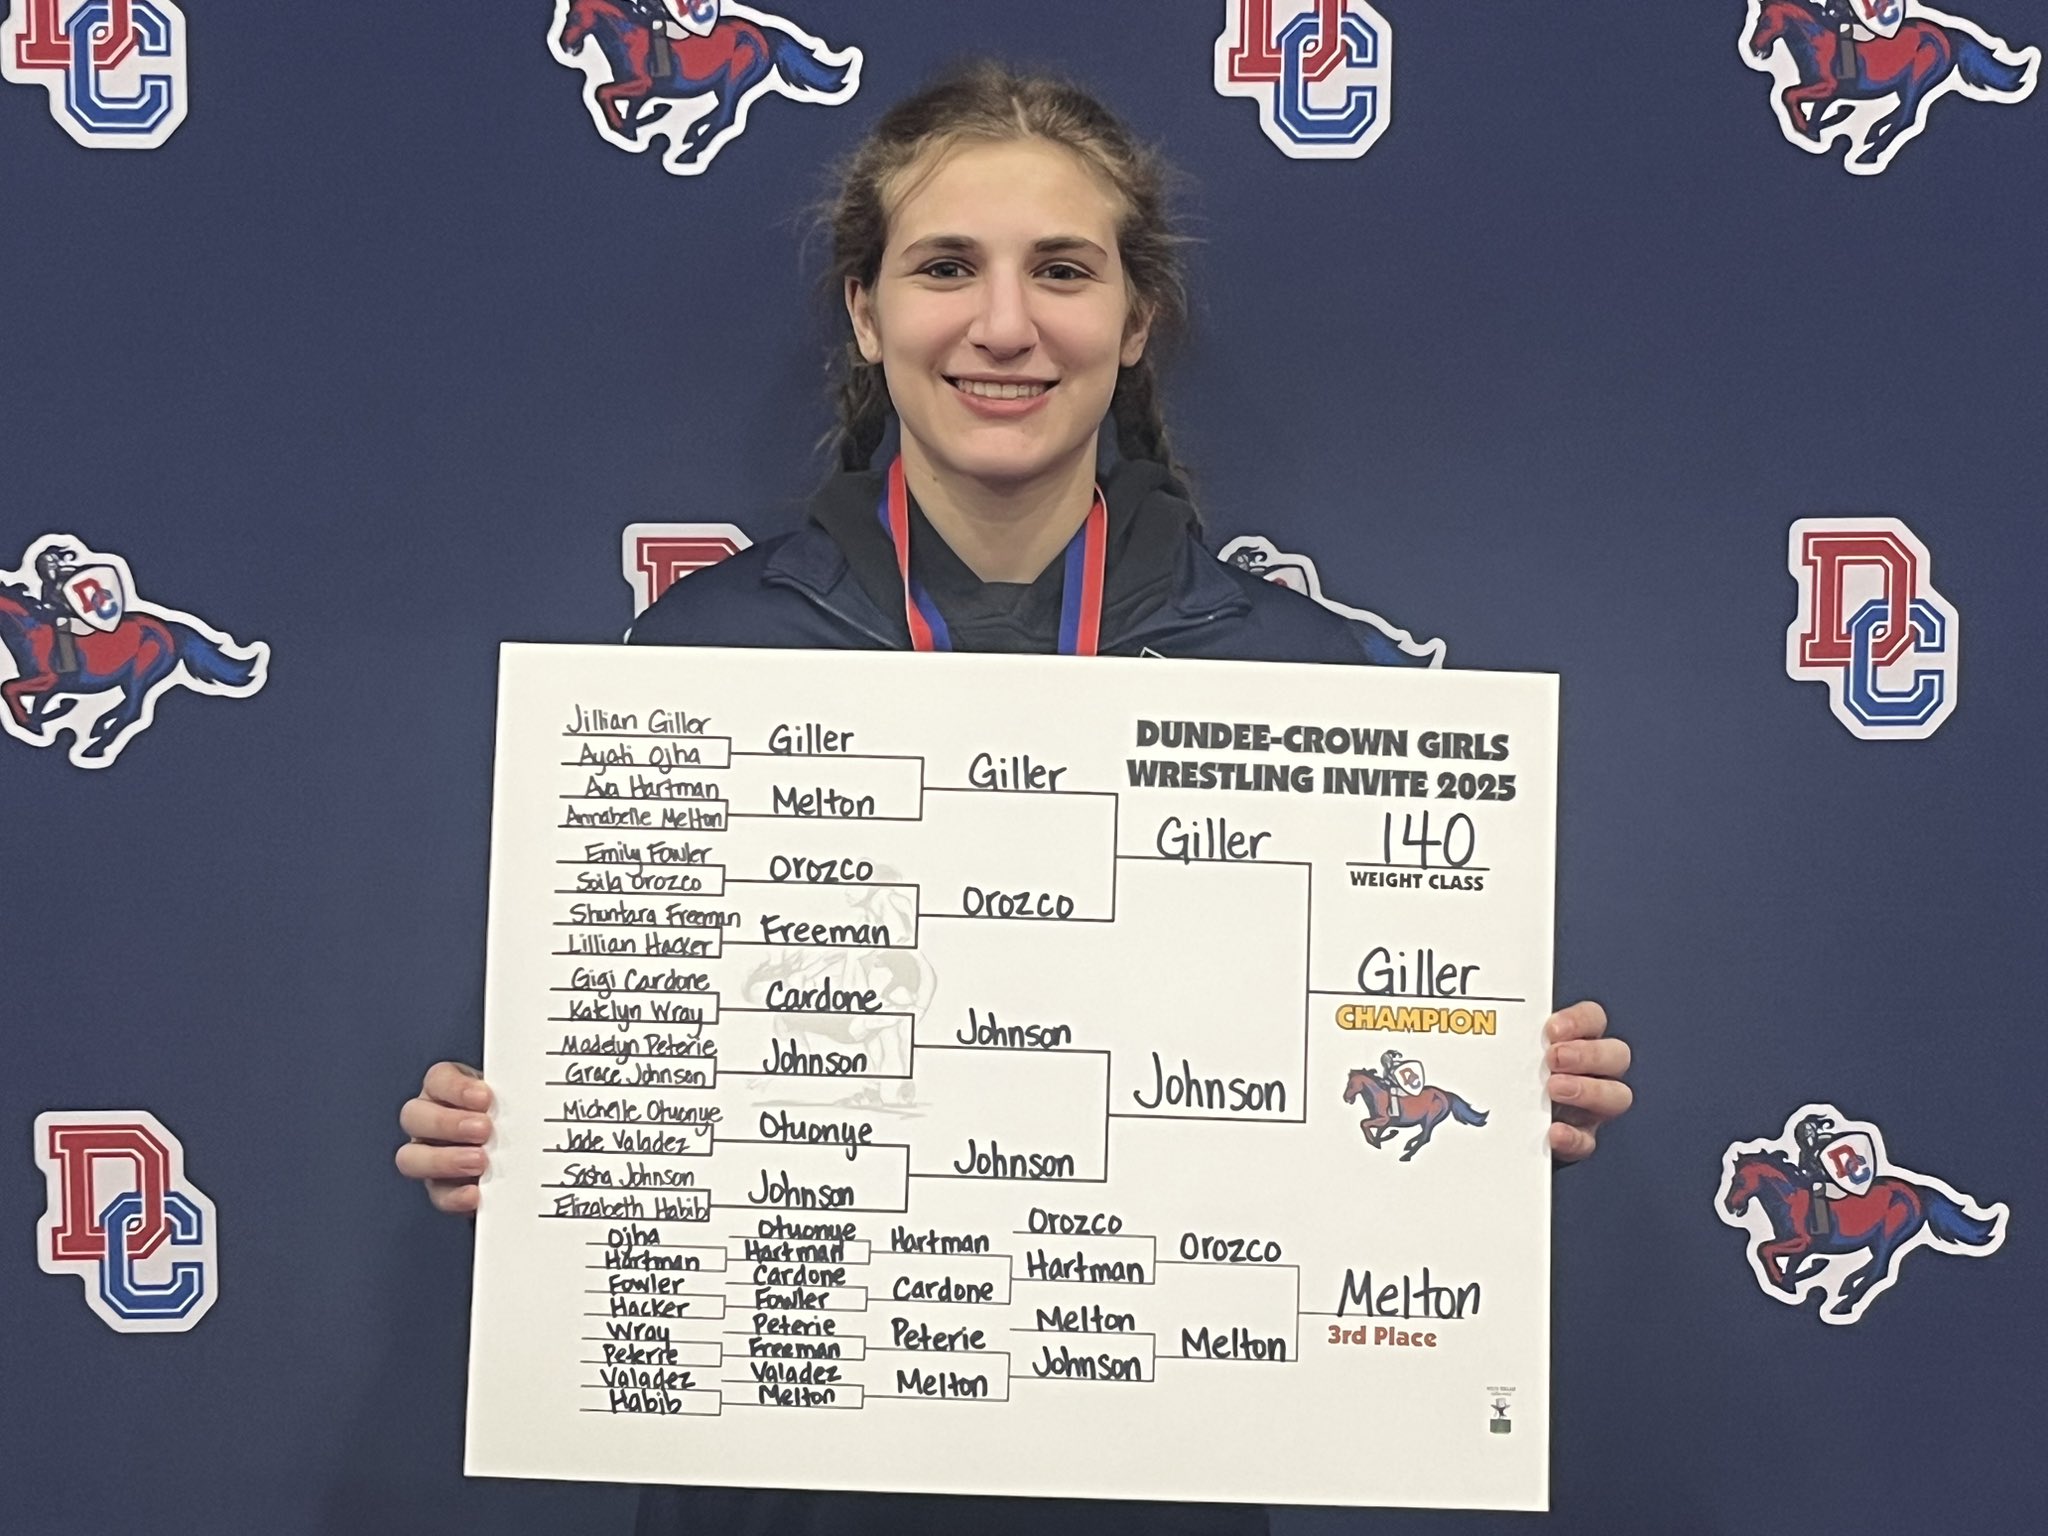 DC
DC
DC
DC
DC
DC
Jillian Giller
Ayati Ojha
Ava Hartman
Annabelle Melton
Emily Fowler
Soila Orozco
Shuntara Freeman
Lillian Hacker
Gigi Cardone
Katelyn Wray
Madelyn Peterie
Grace Johnson
Michelle Otuonye
Jade Valadez
Sasha Johnson
Elizabeth Habib
Giller
Melton
Orozco
Freeman
Cardone
Johnson
Otuonye
Johnson
Giller
Orozco
Johnson
Johnson
Giller
Johnson
DUNDEE-CROWN GIRLS
WRESTLING INVITE 2025
140
WEIGHT CLASS
Giller
CHAMPION
DC
Ojha
Hartman
Fowler
Hacker
Wray
Peterie
Valadez
Habib
Otuonye
Hartman
Cardone
Fowler
Peterie
Freeman
Valadez
Melton
Hartman
Cardone
Peterie
Melton
Orozco
Hartman
Melton
Johnson
Orozco
Melton
Melton
3rd Place
DC
DC